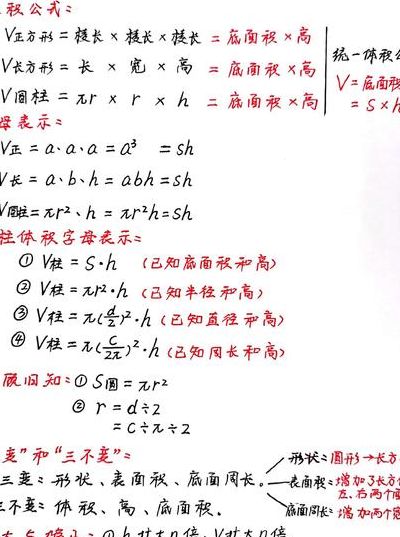 积公式:
V正方形=棱长×棱长×棱长=底面积×高
V长方形=长×宽×高=底面积×高
V圆柱=πr×r×h=底面积×高
统一体积公
V=底面积
=S×h
母表示:
V正=a·a·a=a³=sh
V长=a·b·h=abh=sh
V圆柱=πr²·h=πr²h=sh
柱体积字母表示:
①V柱=S·h(已知底面积和高)
②V柱=πr²·h(已知半径和高)
③V柱=π(d/2)²·h(已知直径和高)
④V柱=π(C/2π)²·h(已知周长和高)
顾旧知:①S圆=πr²
②r=d÷2
=C÷π÷2
变"和"三不变":
三变:形状、表面积、底面周长。
三不变:体积、高、底面积。
形状:圆形→长方
表面积:增加了长方
左、右两个面
底面周长:增加两个
①h扩大n倍,V扩大n倍